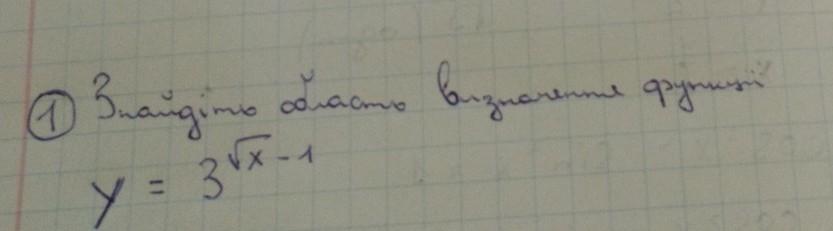 ① Знайдіть область визначення функції
y = 3^{√x - 1}